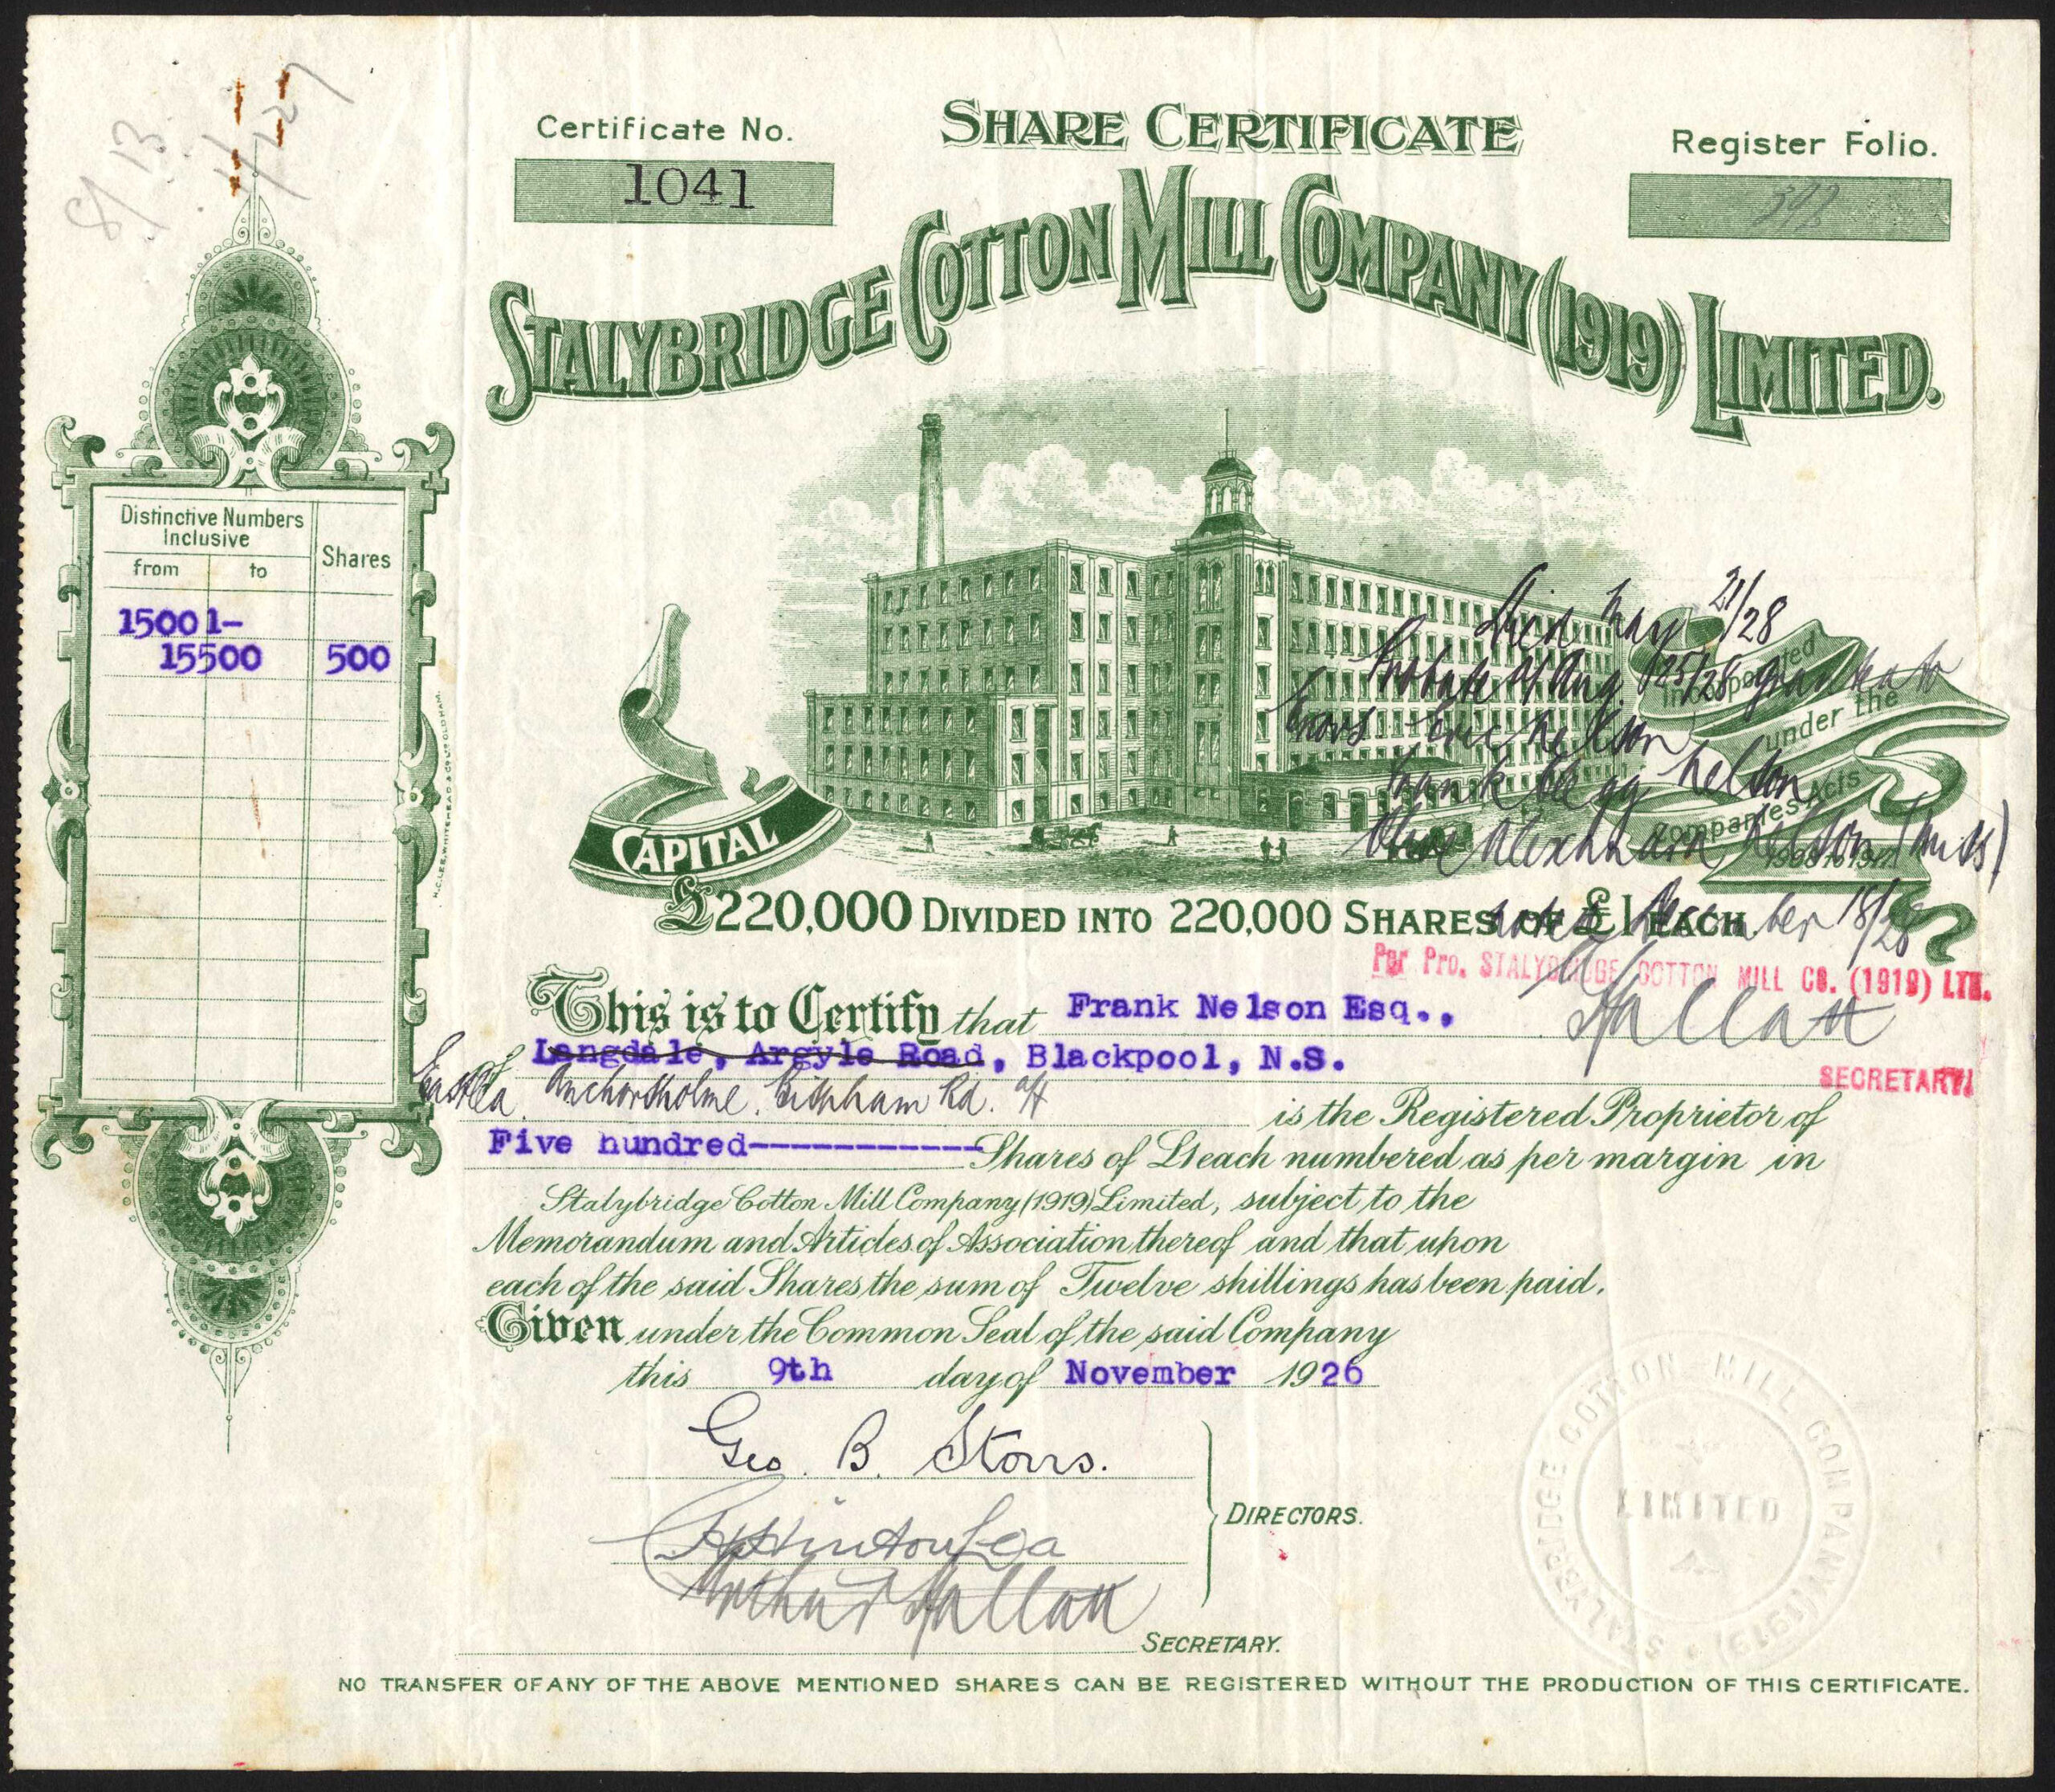 8/13
Certificate No.
1041
SHARE CERTIFICATE
Register Folio.
STALYBRIDGE COTTON MILL COMPANY (1919) LIMITED.
Distinctive Numbers Inclusive
from to Shares
15001-
15500 500
H.C. LEES, WHITEHEAD & CO LTD OLDHAM.
Died May 21/28
Probate of Aug 25/28 granted to
Exors Eric Nelson
Frank Nelson
Olive Nelson (Miss)
noted December 18/28
Incorporated
under the
Companies Acts
CAPITAL
£220,000 DIVIDED INTO 220,000 SHARES OF £1 EACH
Per Pro. STALYBRIDGE COTTON MILL CO. (1919) LTD.
A Hallatt
SECRETARY.
This is to Certify that Frank Nelson Esq.,
of Langdale, Argyle Road, Blackpool, N.S.
Anchorsholme. Rd.
is the Registered Proprietor of
Five hundred------------Shares of £1 each numbered as per margin in
Stalybridge Cotton Mill Company (1919) Limited, subject to the
Memorandum and Articles of Association thereof and that upon
each of the said Shares the sum of Twelve shillings has been paid.
Given under the Common Seal of the said Company
this 9th day of November 1926
Geo. B. Storrs.
DIRECTORS.
Arthur Hallatt
SECRETARY.
STALYBRIDGE COTTON MILL COMPANY (1919)
LIMITED
NO TRANSFER OF ANY OF THE ABOVE MENTIONED SHARES CAN BE REGISTERED WITHOUT THE PRODUCTION OF THIS CERTIFICATE.